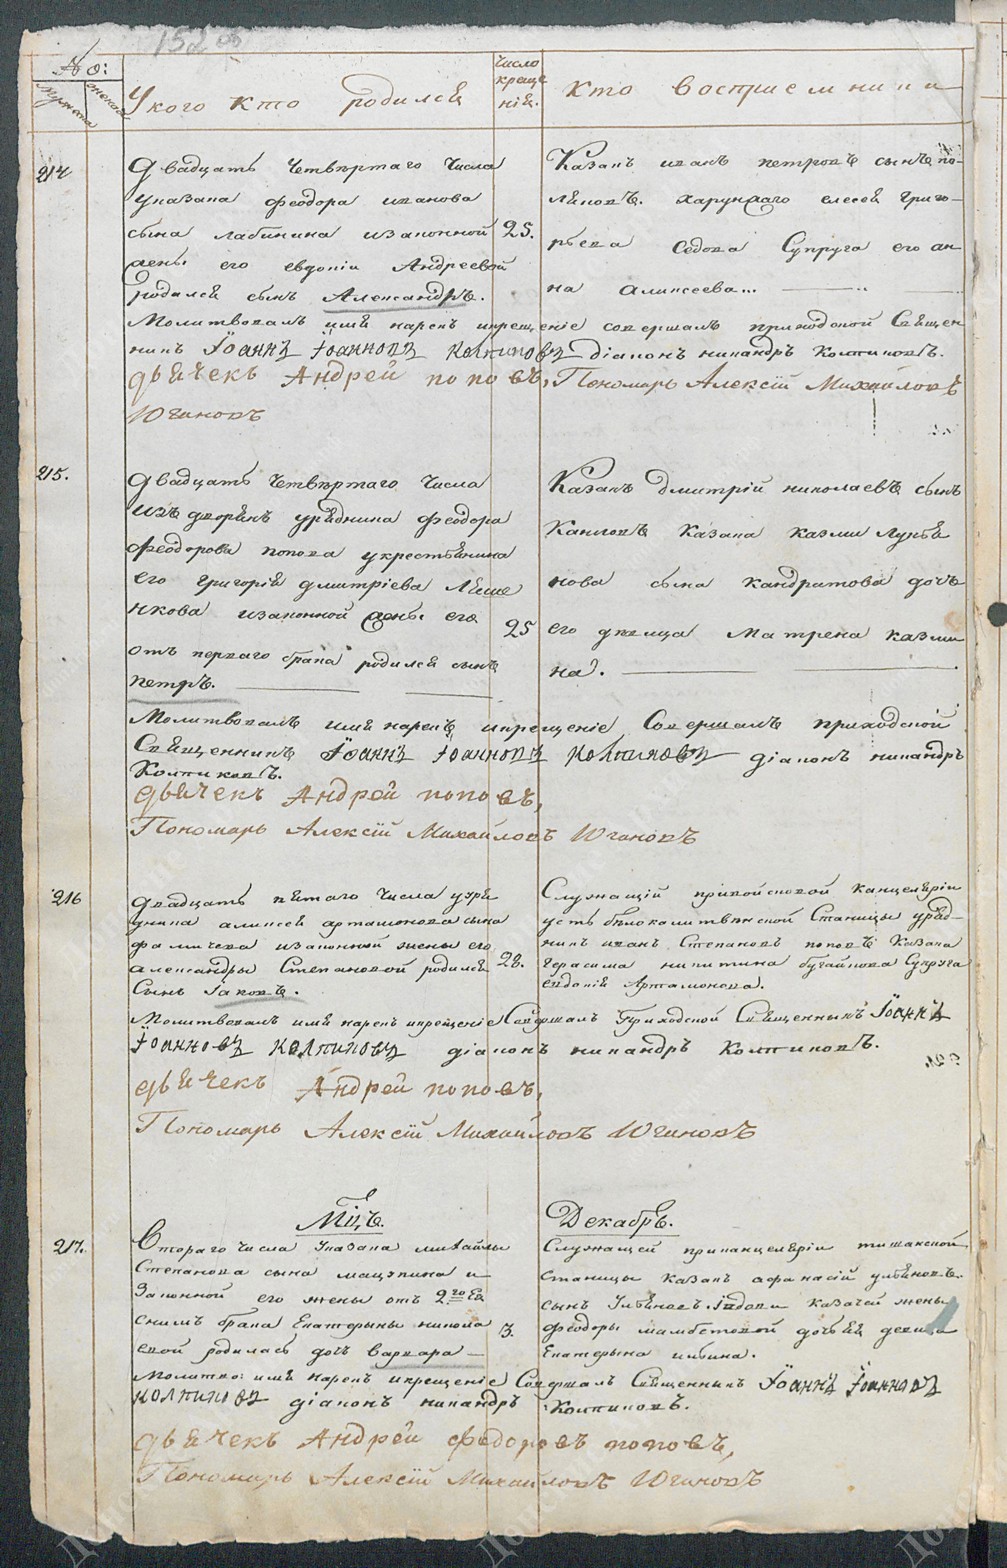 152 об
№:
Мужска
женска
У кого кто родился
число
креще
нія.
кто восприемники
214
Двадцать четвертаго числа
у казака феодора иванова
сына лабинина изаконной
жены его евдокіи Андреевой
родился сынъ Александръ.
25.
Казакъ иванъ петровъ сынъ по-
ляковъ. харунжаго елесея григо-
рьева Седова Супруга его ан-
на аликсеева...
Молитвовалъ имя нарекъ икрещеніе совершалъ приходской Священ
никъ Іоаннъ Іоанновъ Колпиковъ діаконъ никандръ Колпиковъ.
дьячекъ Андрей поповъ, Пономарь Алексій Михайловъ
Югановъ
215.
двадцать четвертаго числа
изъ дворянъ урядника феодора
феодорова попова укрестьянина
его григорія дмитріева Ляше
нкова изаконной жены его
отъ перваго брака родился сынъ
петръ.
25
Казакъ дмитрій николаевъ сынъ
Каниговъ казака казми лукья
нова сына кандратова дочь
его девица Матрена казми
на.
Молитвовалъ имя нарекъ икрещеніе Совершалъ приходской
Священникъ Іоаннъ Іоанновъ Колпиковъ діаконъ никандръ
Колпиковъ.
дьячекъ Андрей поповъ,
Пономарь Алексій Михайловъ Югановъ
216
двадцать пятаго числа ууря
дника аликсея арташонова сына
фаличева изаконной жены его
александры Степановой родился
Сынъ Іаковъ.
28.
Служащій привойсковой канцеляріи
усть белокалитвенской Станицы уряд-
никъ иванъ Степановъ поповъ Казака
герасима никитина бугайкова Супруга
евдокія Артамонова.
Молитвовалъ имя нарекъ икрещеніе Совершалъ Приходской Священникъ Іоаннъ
Іоанновъ Колпиковъ діаконъ никандръ Колпиковъ.
дьячекъ Андрей поповъ,
Пономарь Алексій Михайловъ Югановъ
Мцъ Декабръ.
217.
Втораго числа Указака михайлы
Степанова сына мацыпина и
Законной его жены отъ 2го Ея
Снимъ брака Екатерины никола
евой родилась дочь варвара
3.
Служащей приканцеляріи тишанской
станицы казакъ афанасій ульяновъ.
сынъ Ульяновъ. Івдовы казачей жены
феодоры мамбетовой дочъ ея девица
Екатерина ильина.
Молитво: имя нарекъ икрещеніе Совершалъ Священникъ Іоаннъ Іоанновъ
Колпиковъ діаконъ никандръ Колпиковъ.
дьячекъ Андрей федоровъ поповъ,
Пономарь Алексій Михайловъ Югановъ